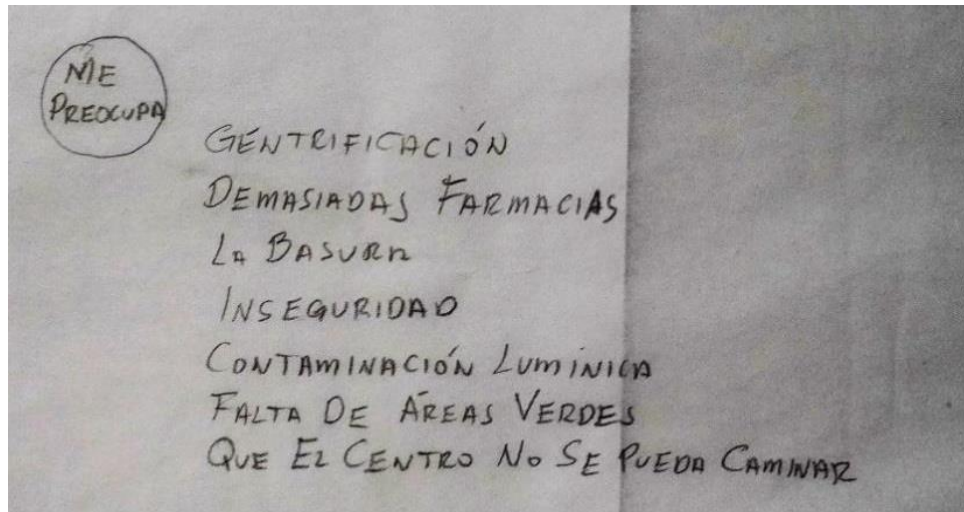 ME
PREOCUPA
GENTRIFICACIÓN
DEMASIADAS FARMACIAS
LA BASURA
INSEGURIDAD
CONTAMINACIÓN LUMÍNICA
FALTA DE ÁREAS VERDES
QUE EL CENTRO NO SE PUEDA CAMINAR